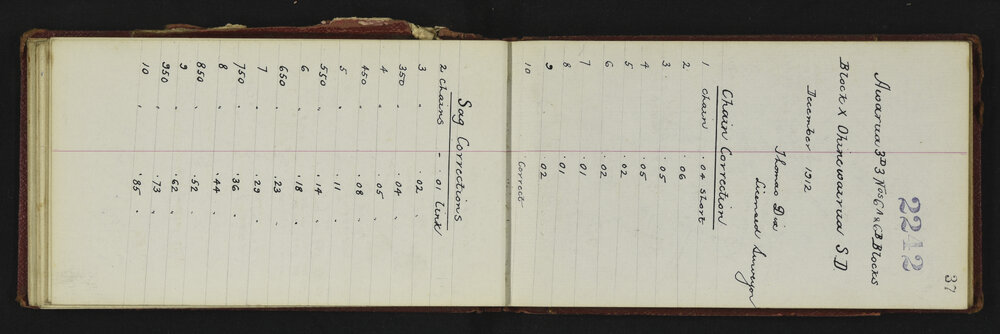 37
2242
Awarua 3D3 Nos 6A & 6B Blocks
Block X Ohinewairua S.D
December 1912
Thomas Dix
Licensed Surveyor
Chain Correction
1 chain .04 short
2 .06
3. .05
4 .05
5 .02
6 .02
7 .01
8 .01
9 .02
10 Correct
Sag Corrections
2 chains - .01 link
3 " .02 "
350 " .04 "
4 " .05 "
450 " .08 "
5 " .11 "
550 " .14 "
6 " .18 "
650 " .23 "
7 " .29 "
750 " .36 "
8 " .44 "
850 " .52 "
9 " .62 "
950 " .73 "
10 " .85 "